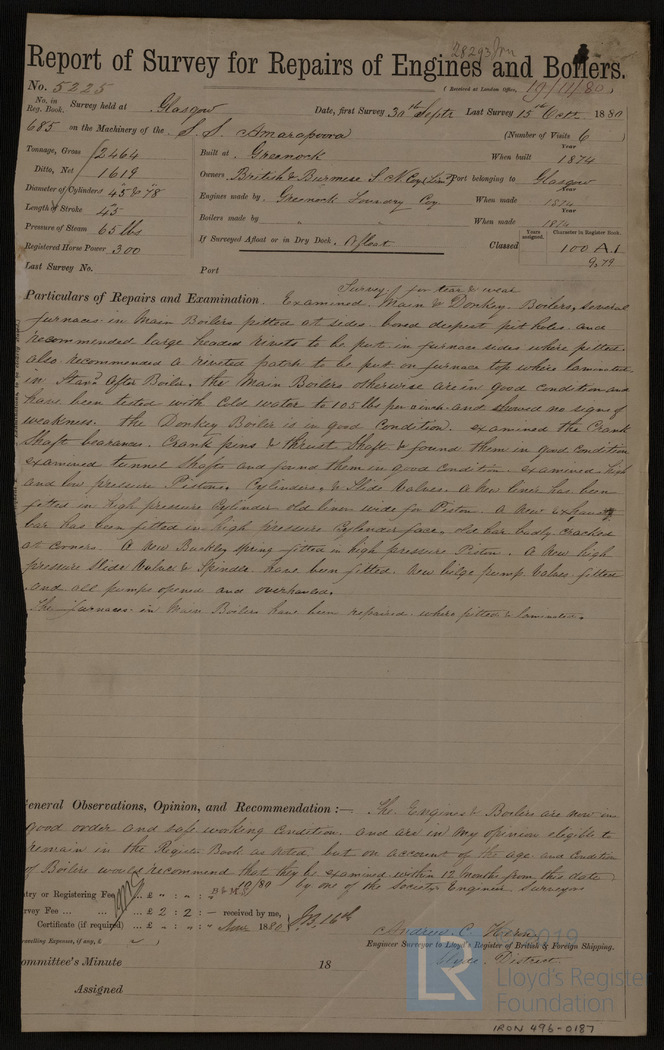 28293
Report of Survey for Repairs of Engines and Boilers.
No. 5225
(Received at London Office, 19/11/80)
No. in Reg. Book. Survey held at Glasgow Date, first Survey 30th Septr Last Survey 15th Octr 1880
685 on the Machinery of the S. S. Amarapoora (Number of Visits 6)
Tonnage, Gross 2464 Built at Greenock When built Year 1874
Ditto, Net 1619 Owners British & Burmese S N Coy Limd Port belonging to Glasgow
Diameter of Cylinders 45" & 78" Engines made by Greenock Foundry Coy When made Year 1874
Length of Stroke 45" Boilers made by " " When made Year 1874
Pressure of Steam 65 lbs If Surveyed Afloat or in Dry Dock, Afloat Classed Years assigned. Character in Register Book. 100 A1
Registered Horse Power 300 9,79
Last Survey No. Port
Survey for tear & wear
Particulars of Repairs and Examination. Examined Main & Donkey Boilers, several
furnaces in Main Boilers pitted at sides bored deepest pit holes and
recommended large headed rivets to be put in furnace sides where pitted.
also recommended a riveted patch to be put on furnace top where laminated
in Starb after Boiler. the Main Boilers otherwise are in good condition and
have been tested with cold water to 105 lbs per inch and showed no signs of
weakness. the Donkey Boiler is in good condition. examined the Crank
Shaft bearances. Crank pins & thrust Shaft & found them in good condition
examined tunnel Shafts and found them in good condition. examined high
and low pressure Pistons, Cylinders, & Slide Valves. A New liner has been
fitted in high pressure Cylinder old liner wide for Piston. A New Exhaust
bar has been fitted in high pressure Cylinder face, old bar badly cracked
at corners. A New Buckley spring fitted in high pressure Piston. A New high
pressure Slide Valve & Spindle have been fitted. New bilge pump valves fitted
and all pumps opened and overhauled.
The furnaces in Main Boilers have been repaired where pitted & laminated.
General Observations, Opinion, and Recommendation :— The Engines & Boilers are now in
good order and safe working condition. and are in my opinion eligible to
remain in the Register Book as noted but on account of the age and condition
of Boilers would recommend that they be examined within 12 months from this date
10/80 by one of the Societys Engineer Surveyors
Entry or Registering Fee £ : :
Survey Fee ... ... £ 2 : 2 : — received by me,
Certificate (if required) ... £ : : 1880
(Travelling Expenses, if any, £ )
Andrew C. Heron
Engineer Surveyor to Lloyd's Register of British & Foreign Shipping.
Clyde District
Committee's Minute 18
Assigned
2019
LR
Lloyd's Register
Foundation
IRON 496-0187